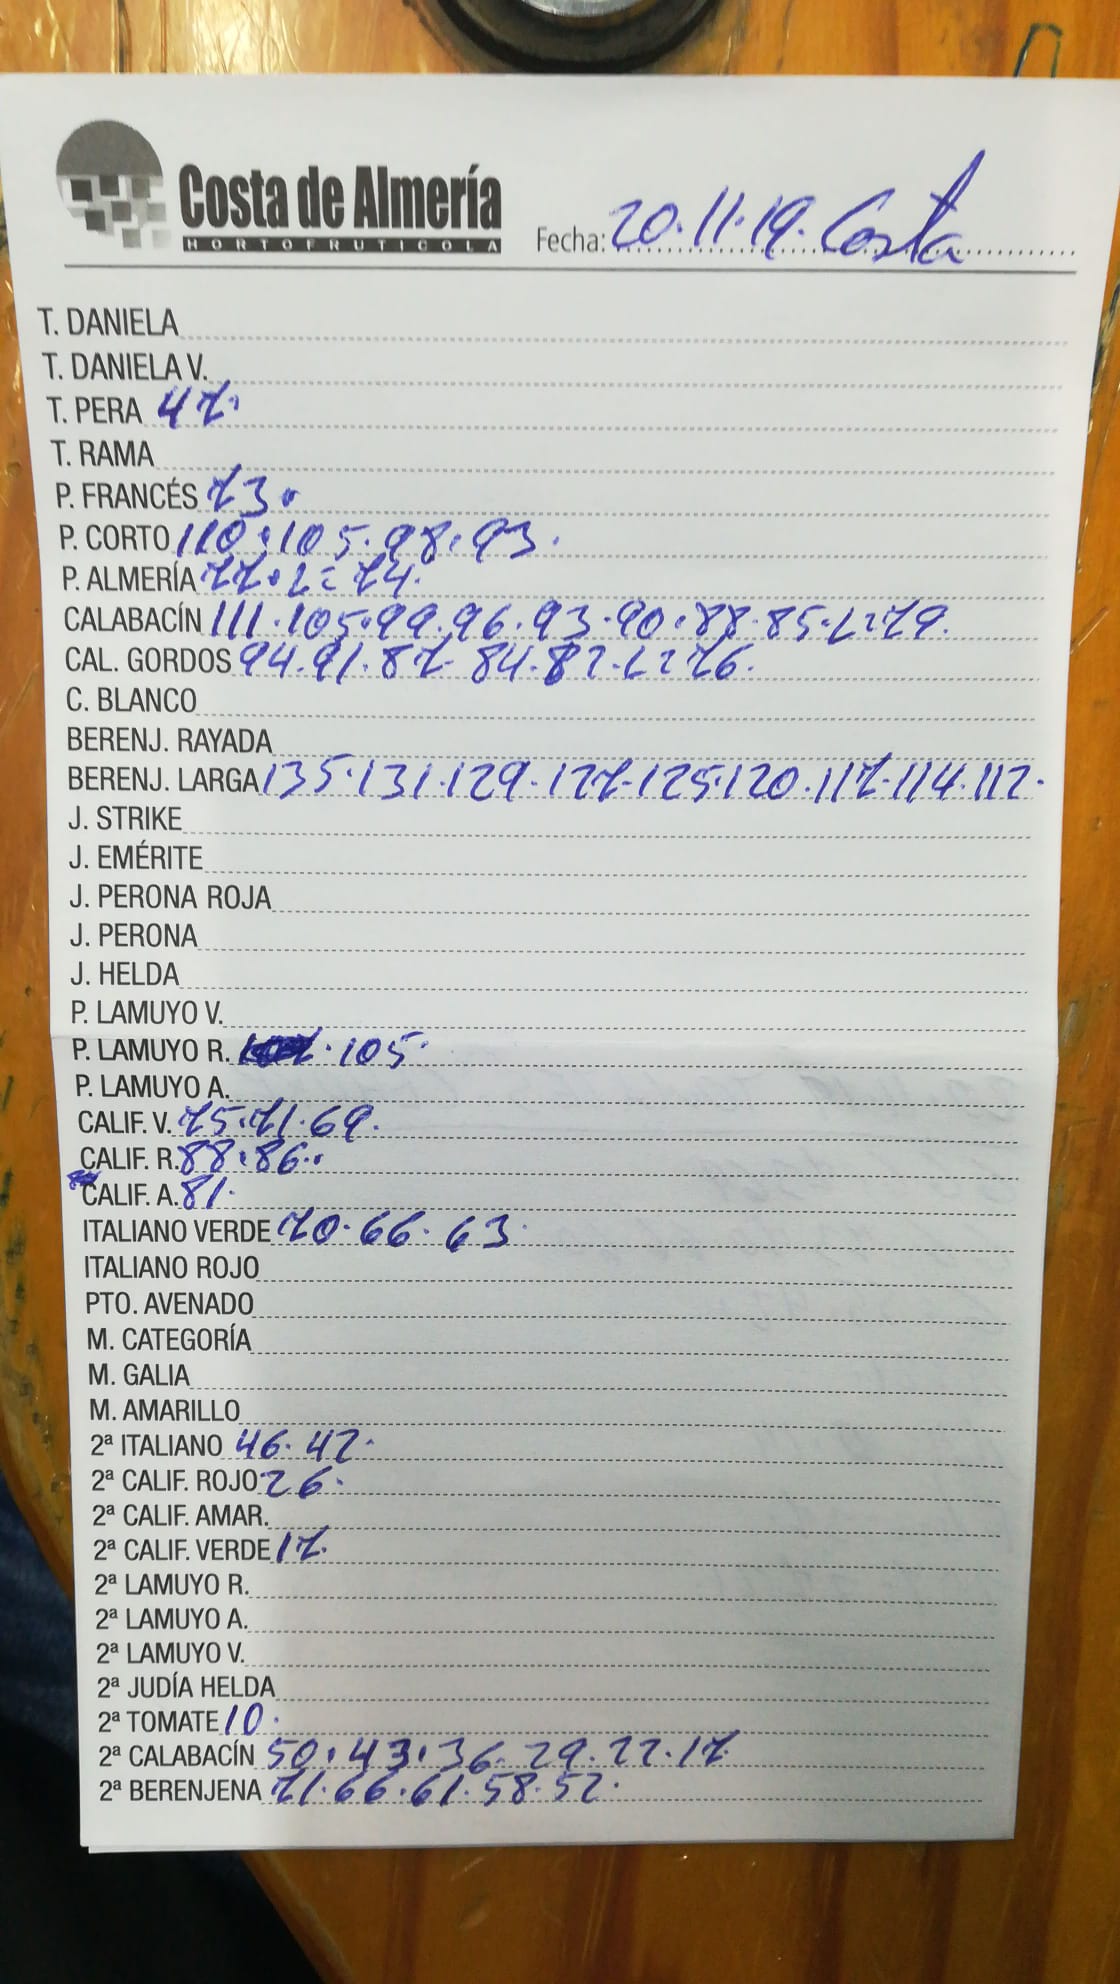 Costa de Almería
HORTOFRUTICOLA
Fecha: 20.11.19. Costa
T. DANIELA
T. DANIELA V.
T. PERA 47.
T. RAMA
P. FRANCÉS 73.
P. CORTO 110.105.98.93.
P. ALMERÍA 77.L=74.
CALABACÍN 111.105.99.96.93.90.88.85.L=79.
CAL. GORDOS 94.91.87.84.82.L=76.
C. BLANCO
BERENJ. RAYADA
BERENJ. LARGA 135.131.129.127.125.120.117.114.112.
J. STRIKE
J. EMÉRITE
J. PERONA ROJA
J. PERONA
J. HELDA
P. LAMUYO V.
P. LAMUYO R. .105.
P. LAMUYO A.
CALIF. V. 75.71.69.
CALIF. R. 88.86..
CALIF. A. 81.
ITALIANO VERDE 70.66.63.
ITALIANO ROJO
PTO. AVENADO
M. CATEGORÍA
M. GALIA
M. AMARILLO
2ª ITALIANO 46.42.
2ª CALIF. ROJO 26.
2ª CALIF. AMAR.
2ª CALIF. VERDE 17.
2ª LAMUYO R.
2ª LAMUYO A.
2ª LAMUYO V.
2ª JUDÍA HELDA
2ª TOMATE 10.
2ª CALABACÍN 50.43.36.29.22.17.
2ª BERENJENA 71.66.61.58.52.